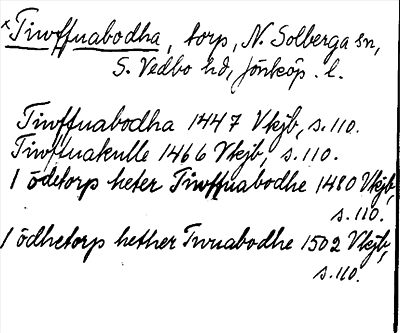 ×Tiwffuabodha, torp, N. Solberga sn,
S. Vedbo hd, Jönköp. l.
Tiwffuabodha 1447 Vkjb, s. 110.
Tiwffuakulle 1466 Vkjb, s. 110.
1 ödetorp heter Tiwffuabodhe 1480 Vkjb,
s. 110.
1 ödhetorp hether Twuabodhe 1502 Vkjb,
s. 110.